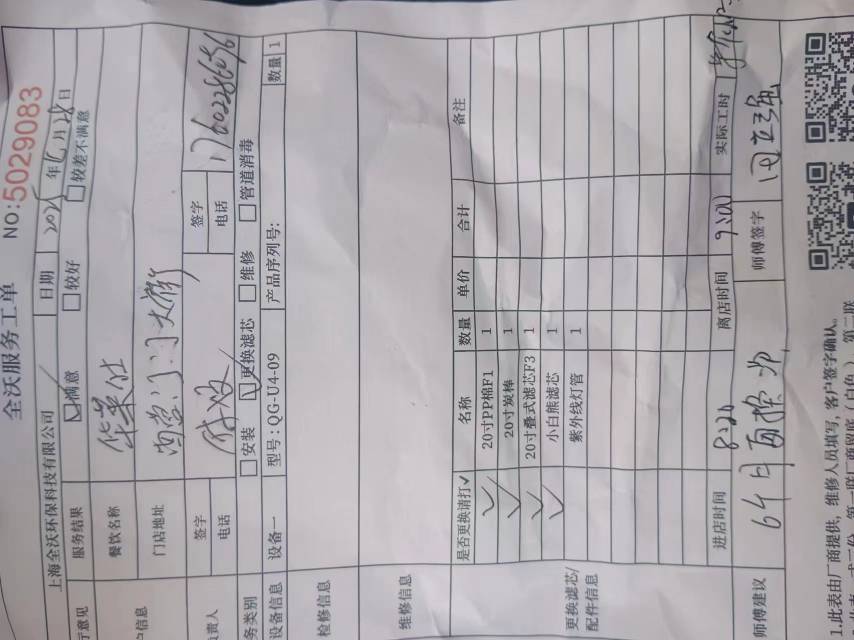 全沃服务工单
NO:5029083
上海全沃环保科技有限公司 日期 年 月28日
行意见 服务结果 ☑满意 □较好 □较差不满意
户信息 餐饮名称 华莱仕
门店地址 大街
责人 签字 签字
电话 电话 17602286096
务类别 □安装 ☑更换滤芯 □维修 □管道消毒
设备信息 设备一 型号:QG-U4-09 产品序列号: 数量 1
检修信息
维修信息
更换滤芯/
配件信息
是否更换请打✓ 名称 数量 单价 合计 备注
✓ 20寸PP棉F1 1
✓ 20寸炭棒 1
✓ 20寸叠式滤芯F3 1
✓ 小白熊滤芯 1
紫外线灯管 1
进店时间 8:20 离店时间 9:00 实际工时
师傅建议 6个月 师傅签字
1.此表由厂商提供，维修人员填写，客户签字确认。